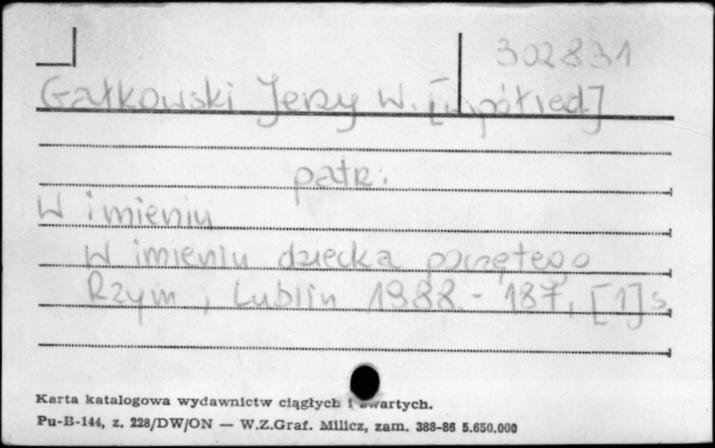 302831
Gałkowski Jerzy W. [współred]
patrz:
W imieniu
W imieniu dziecka poczętego
Rzym, Lublin 1988 - 187, [1] s.
Karta katalogowa wydawnictw ciągłych i zwartych.
Pu-B-144, z. 228/DW/ON — W.Z.Graf. Milicz, zam. 388-86 5.650.000